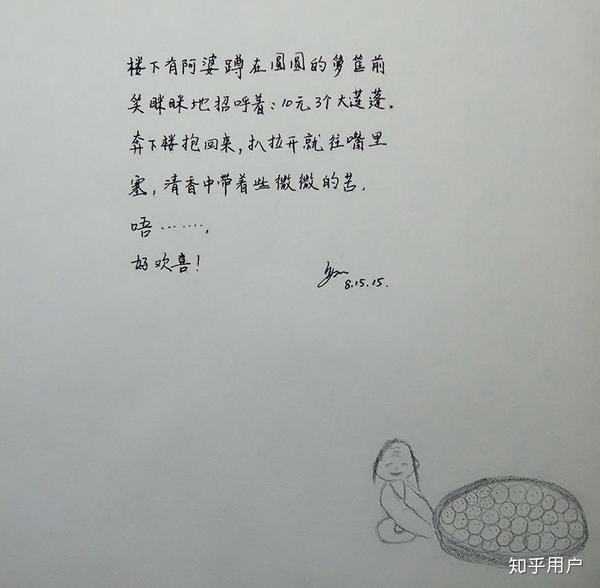 楼下有阿婆蹲在圆圆的箩筐前
笑眯眯地招呼着：10元3个大莲蓬。
奔下楼抱回来，扒拉开就往嘴里
塞，清香中带着些微微的苦.
唔…….
好欢喜！
8.15.15.
知乎用户